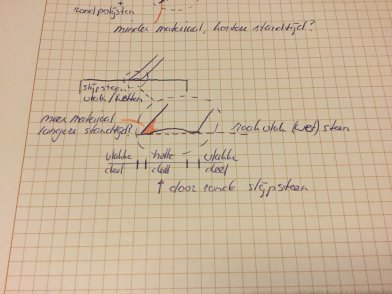 rondpolijsten
minder materiaal, kortere standtijd?
slijpsteen
vlak/wetten
meer materiaal
langere standtijd?
vlak (wet) steen
vlakke deel
holle deel
vlakke deel
↑ door ronde slijpsteen